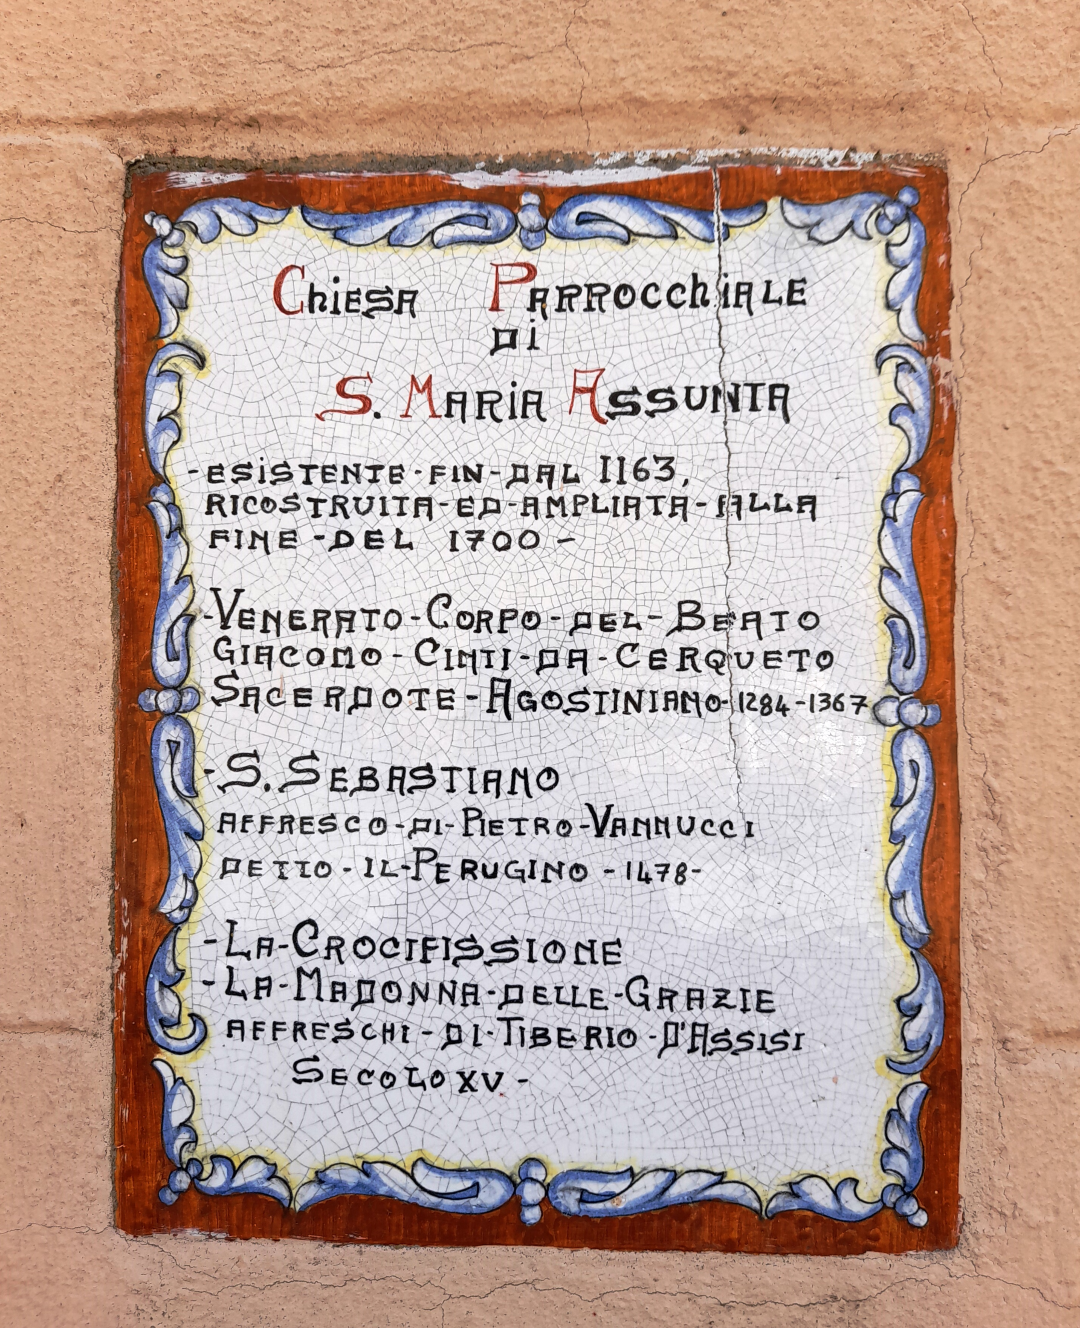 Chiesa Parrocchiale
di
S. Maria Assunta
-ESISTENTE-FIN-DAL 1163,
RICOSTRUITA-ED-AMPLIATA-ALLA
FINE-DEL 1700-
-VENERATO-CORPO-DEL-BEATO
GIACOMO-CINTI-DA-CERQUETO
SACERDOTE-AGOSTINIANO-1284-1367
-S.SEBASTIANO
AFFRESCO-DI-PIETRO-VANNUCCI
DETTO-IL-PERUGINO-1478-
-LA-CROCIFISSIONE
-LA-MADONNA-DELLE-GRAZIE
AFFRESCHI-DI-TIBERIO-D'ASSISI
SECOLO XV-